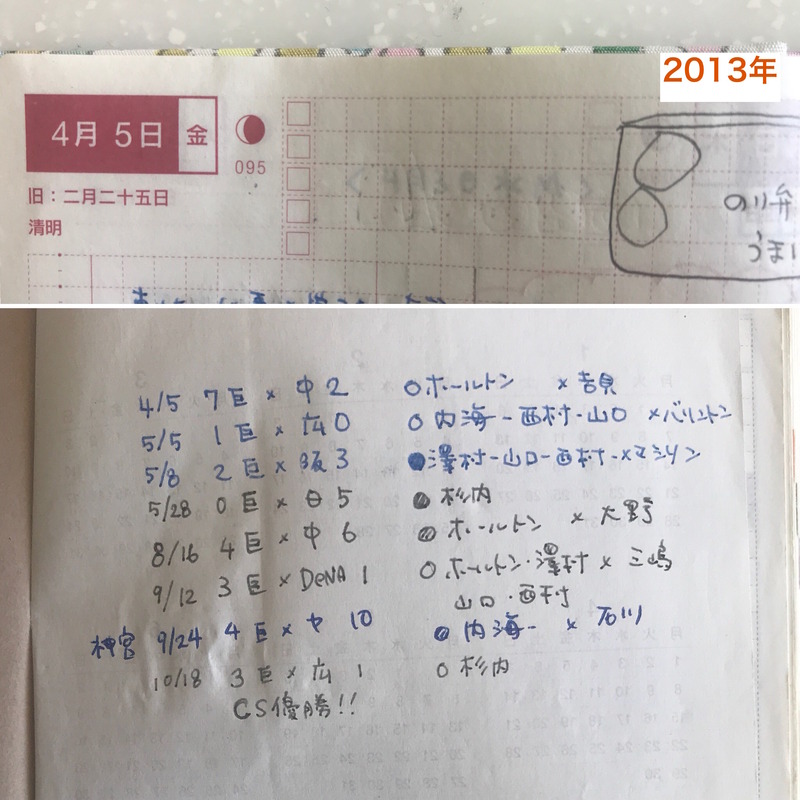 2013年
4月 5日 金
095
旧：二月二十五日
清明
のり弁
うまい
4/5 7 巨 × 中 2 ○ホールトン × 吉見
5/5 1 巨 × 広 0 ○内海-西村-山口 ×バリントン
5/8 2 巨 × 阪 3 ●澤村-山口-西村-×マシソン
5/28 0 巨 × 日 5 ●杉内
8/16 4 巨 × 中 6 ●ホールトン × 大野
9/12 3 巨 × DeNA 1 ○ホールトン・澤村 × 三嶋
山口・西村
神宮 9/24 4 巨 × ヤ 10 ●内海- × 石川
10/18 3 巨 × 広 1 ○杉内
CS優勝!!